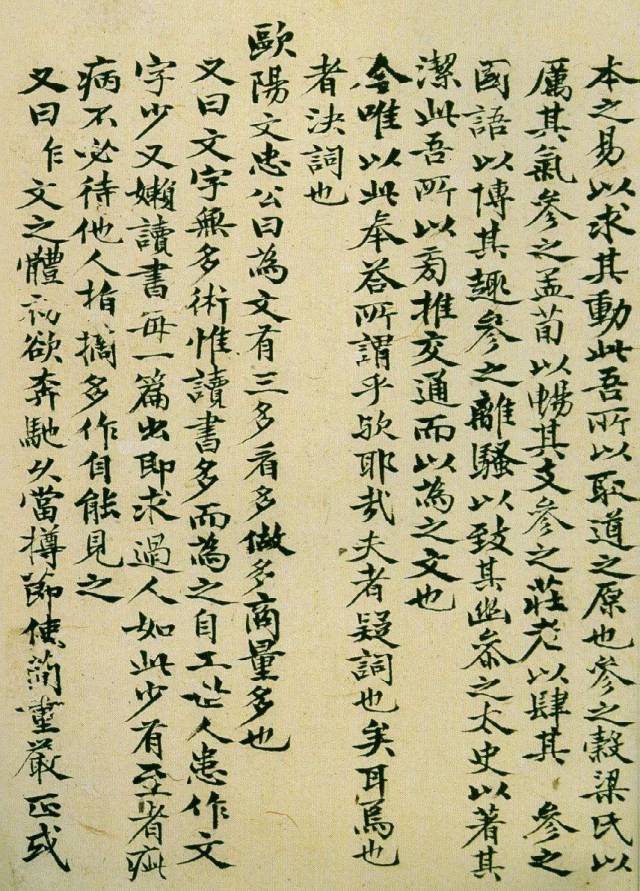 本之易以求其動此吾所以取道之原也參之穀梁氏以
厲其氣參之孟荀以暢其支參之莊老以肆其 參之
國語以博其趣參之離騷以致其幽參之太史以著其
潔此吾所以旁推交通而以為之文也
今唯以此奉答所謂乎欤耶哉夫者疑詞也矣耳焉也
者決詞也
歐陽文忠公曰為文有三多看多做多商量多也
又曰文字無多術惟讀書多而為之自工世人患作文
字少又嬾讀書每一篇出即求過人如此少有至者疵
病不必待他人指摘多作自能見之
又曰作文之體初欲奔馳久當撙節使簡重嚴正或